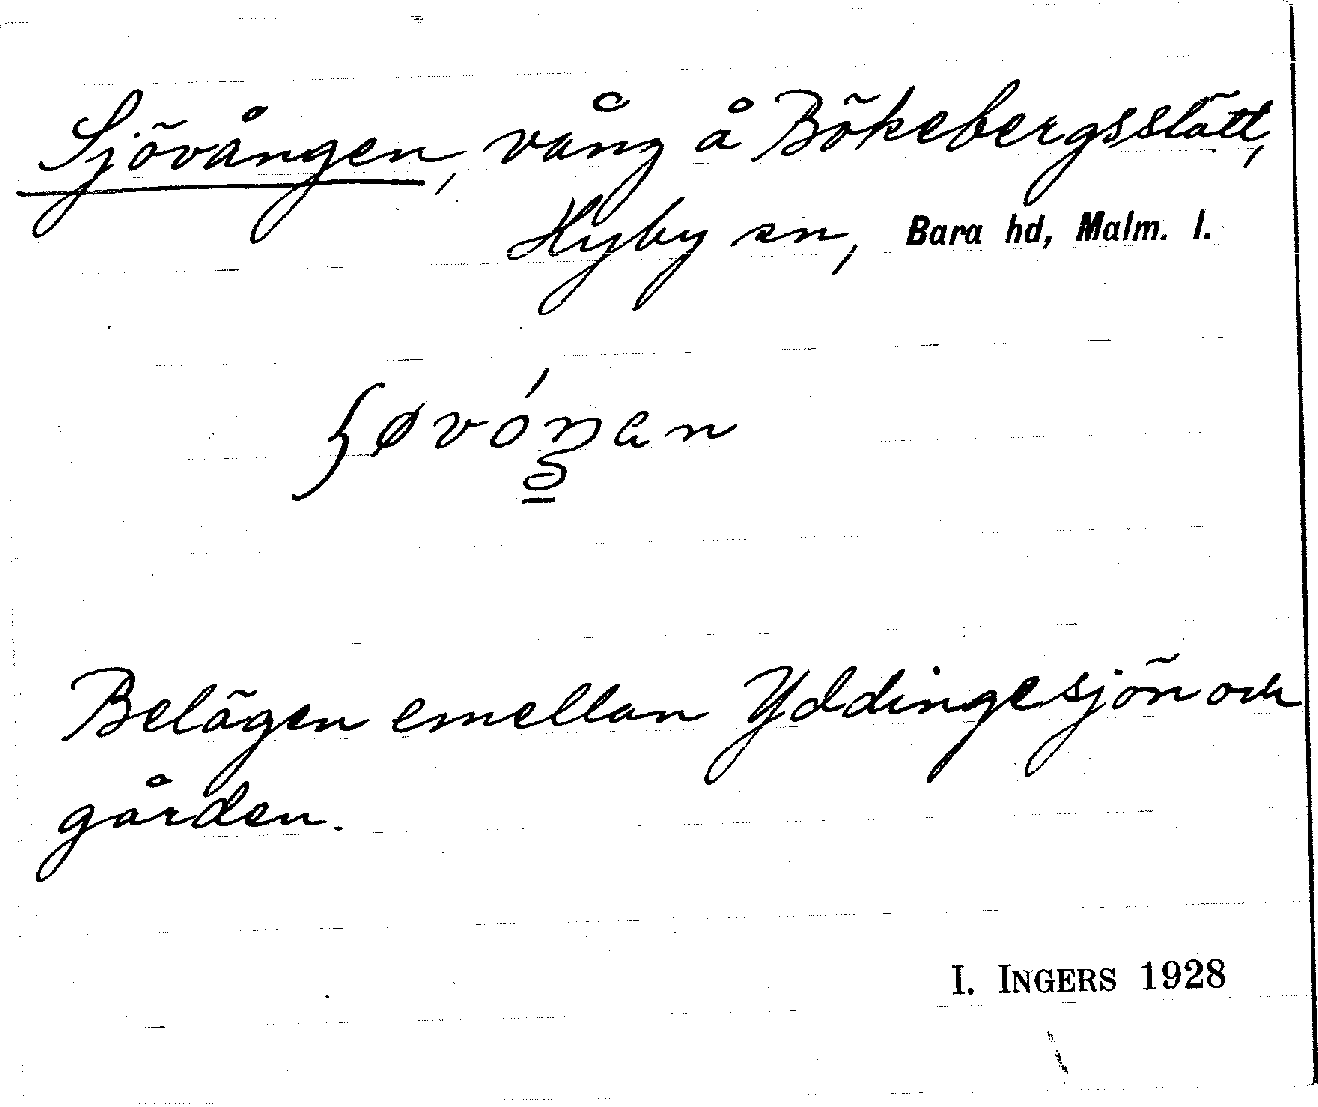 Sjövången, vång å Bökebergsslätt,
Hyby sn, Bara hd, Malm. l.
Belägen emellan Yddingesjön och
gården.
I. INGERS 1928